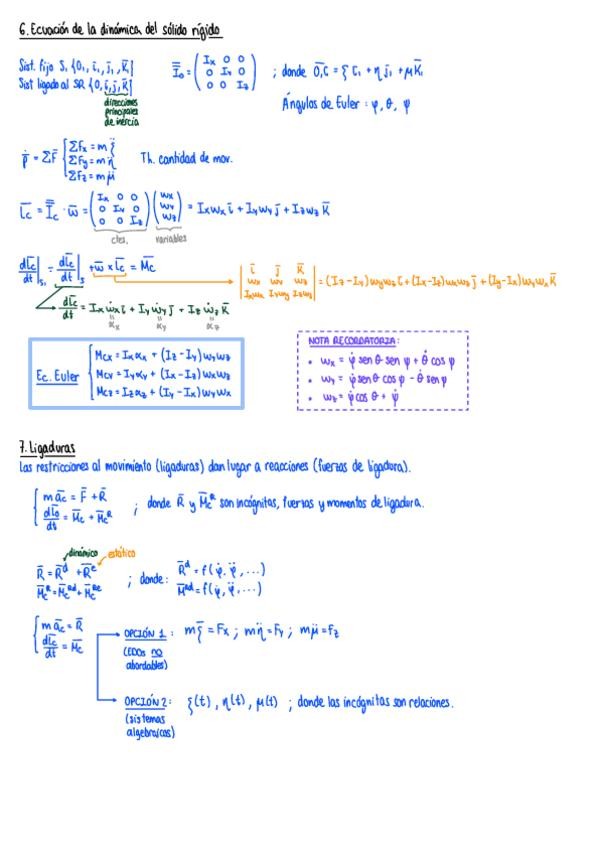 6. Ecuación de la dinámica del sólido rígido
Sist. fijo S₁ {O₁, ī₁, j̄₁, k̄₁}
Sist ligado al SR {O, ī, j̄, k̄}
direcciones principales de inercia
Ī̄₀ = (Ix 0 0; 0 Iy 0; 0 0 Iz) ; donde O₁C̄ = ξ ī₁ + η j̄₁ + μ k̄₁
Ángulos de Euler: ψ, θ, φ
ṗ̄ = ΣF̄ { ΣFx = m ξ̈
ΣFy = m η̈
ΣFz = m μ̈
Th. cantidad de mov.
L̄c = Ī̄c · ω̄ = (Ix 0 0; 0 Iy 0; 0 0 Iz) (ωx; ωy; ωz) = Ixωx ī + Iyωy j̄ + Izωz k̄
ctes. variables
dL̄c/dt|s₁ = dL̄c/dt|s + ω̄ × L̄c = M̄c
| ī j̄ k̄; ωx ωy ωz; Ixωx Iyωy Izωz | = (Iz - Iy) ωyωz ī + (Ix - Iz) ωxωz j̄ + (Iy - Ix) ωyωx k̄
dL̄c/dt = Ix ω̇x ī + Iy ω̇y j̄ + Iz ω̇z k̄
αx αy αz
Ec. Euler
Mcx = Ixαx + (Iz - Iy) ωyωz
Mcy = Iyαy + (Ix - Iz) ωxωz
Mcz = Izαz + (Iy - Ix) ωyωx
NOTA RECORDATORIA:
• ωx = ψ̇ sen θ sen φ + θ̇ cos φ
• ωy = ψ̇ sen θ cos φ - θ̇ sen φ
• ωz = ψ̇ cos θ + φ̇
7. Ligaduras
Las restricciones al movimiento (ligaduras) dan lugar a reacciones (fuerzas de ligadura).
m āc = F̄ + R̄
dL̄c/dt = M̄c + M̄cᴿ
; donde R̄ y M̄cᴿ son incógnitas, fuerzas y momentos de ligadura.
dinámico estático
R̄ = R̄ᵈ + R̄ᵉ
M̄cᴿ = M̄cᴿᵈ + M̄cᴿᵉ
; donde:
R̄ᵈ = f(φ̇, φ̈, ...)
M̄ᴿᵈ = f(φ̇, φ̈, ...)
m āc = R̄
dL̄c/dt = M̄c
OPCIÓN 1: m ξ̈ = Fx ; m η̈ = Fy ; m μ̈ = fz
(EDOs no abordables)
OPCIÓN 2: ξ(t), η(t), μ(t) ; donde las incógnitas son relaciones.
(sistemas algebraicos)